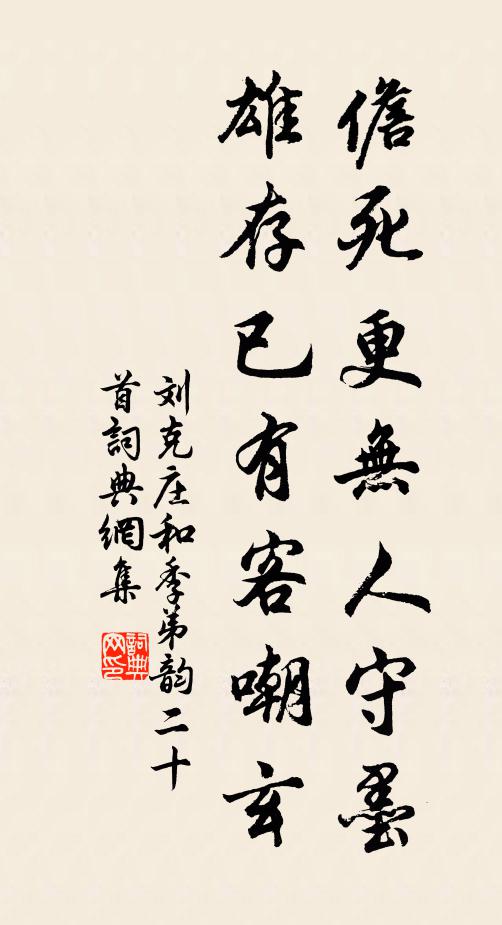 儋死更無人守墨
雄存已有客嘲玄
刘克庄和季弟韵二十
首詞典網集
詞典
网印